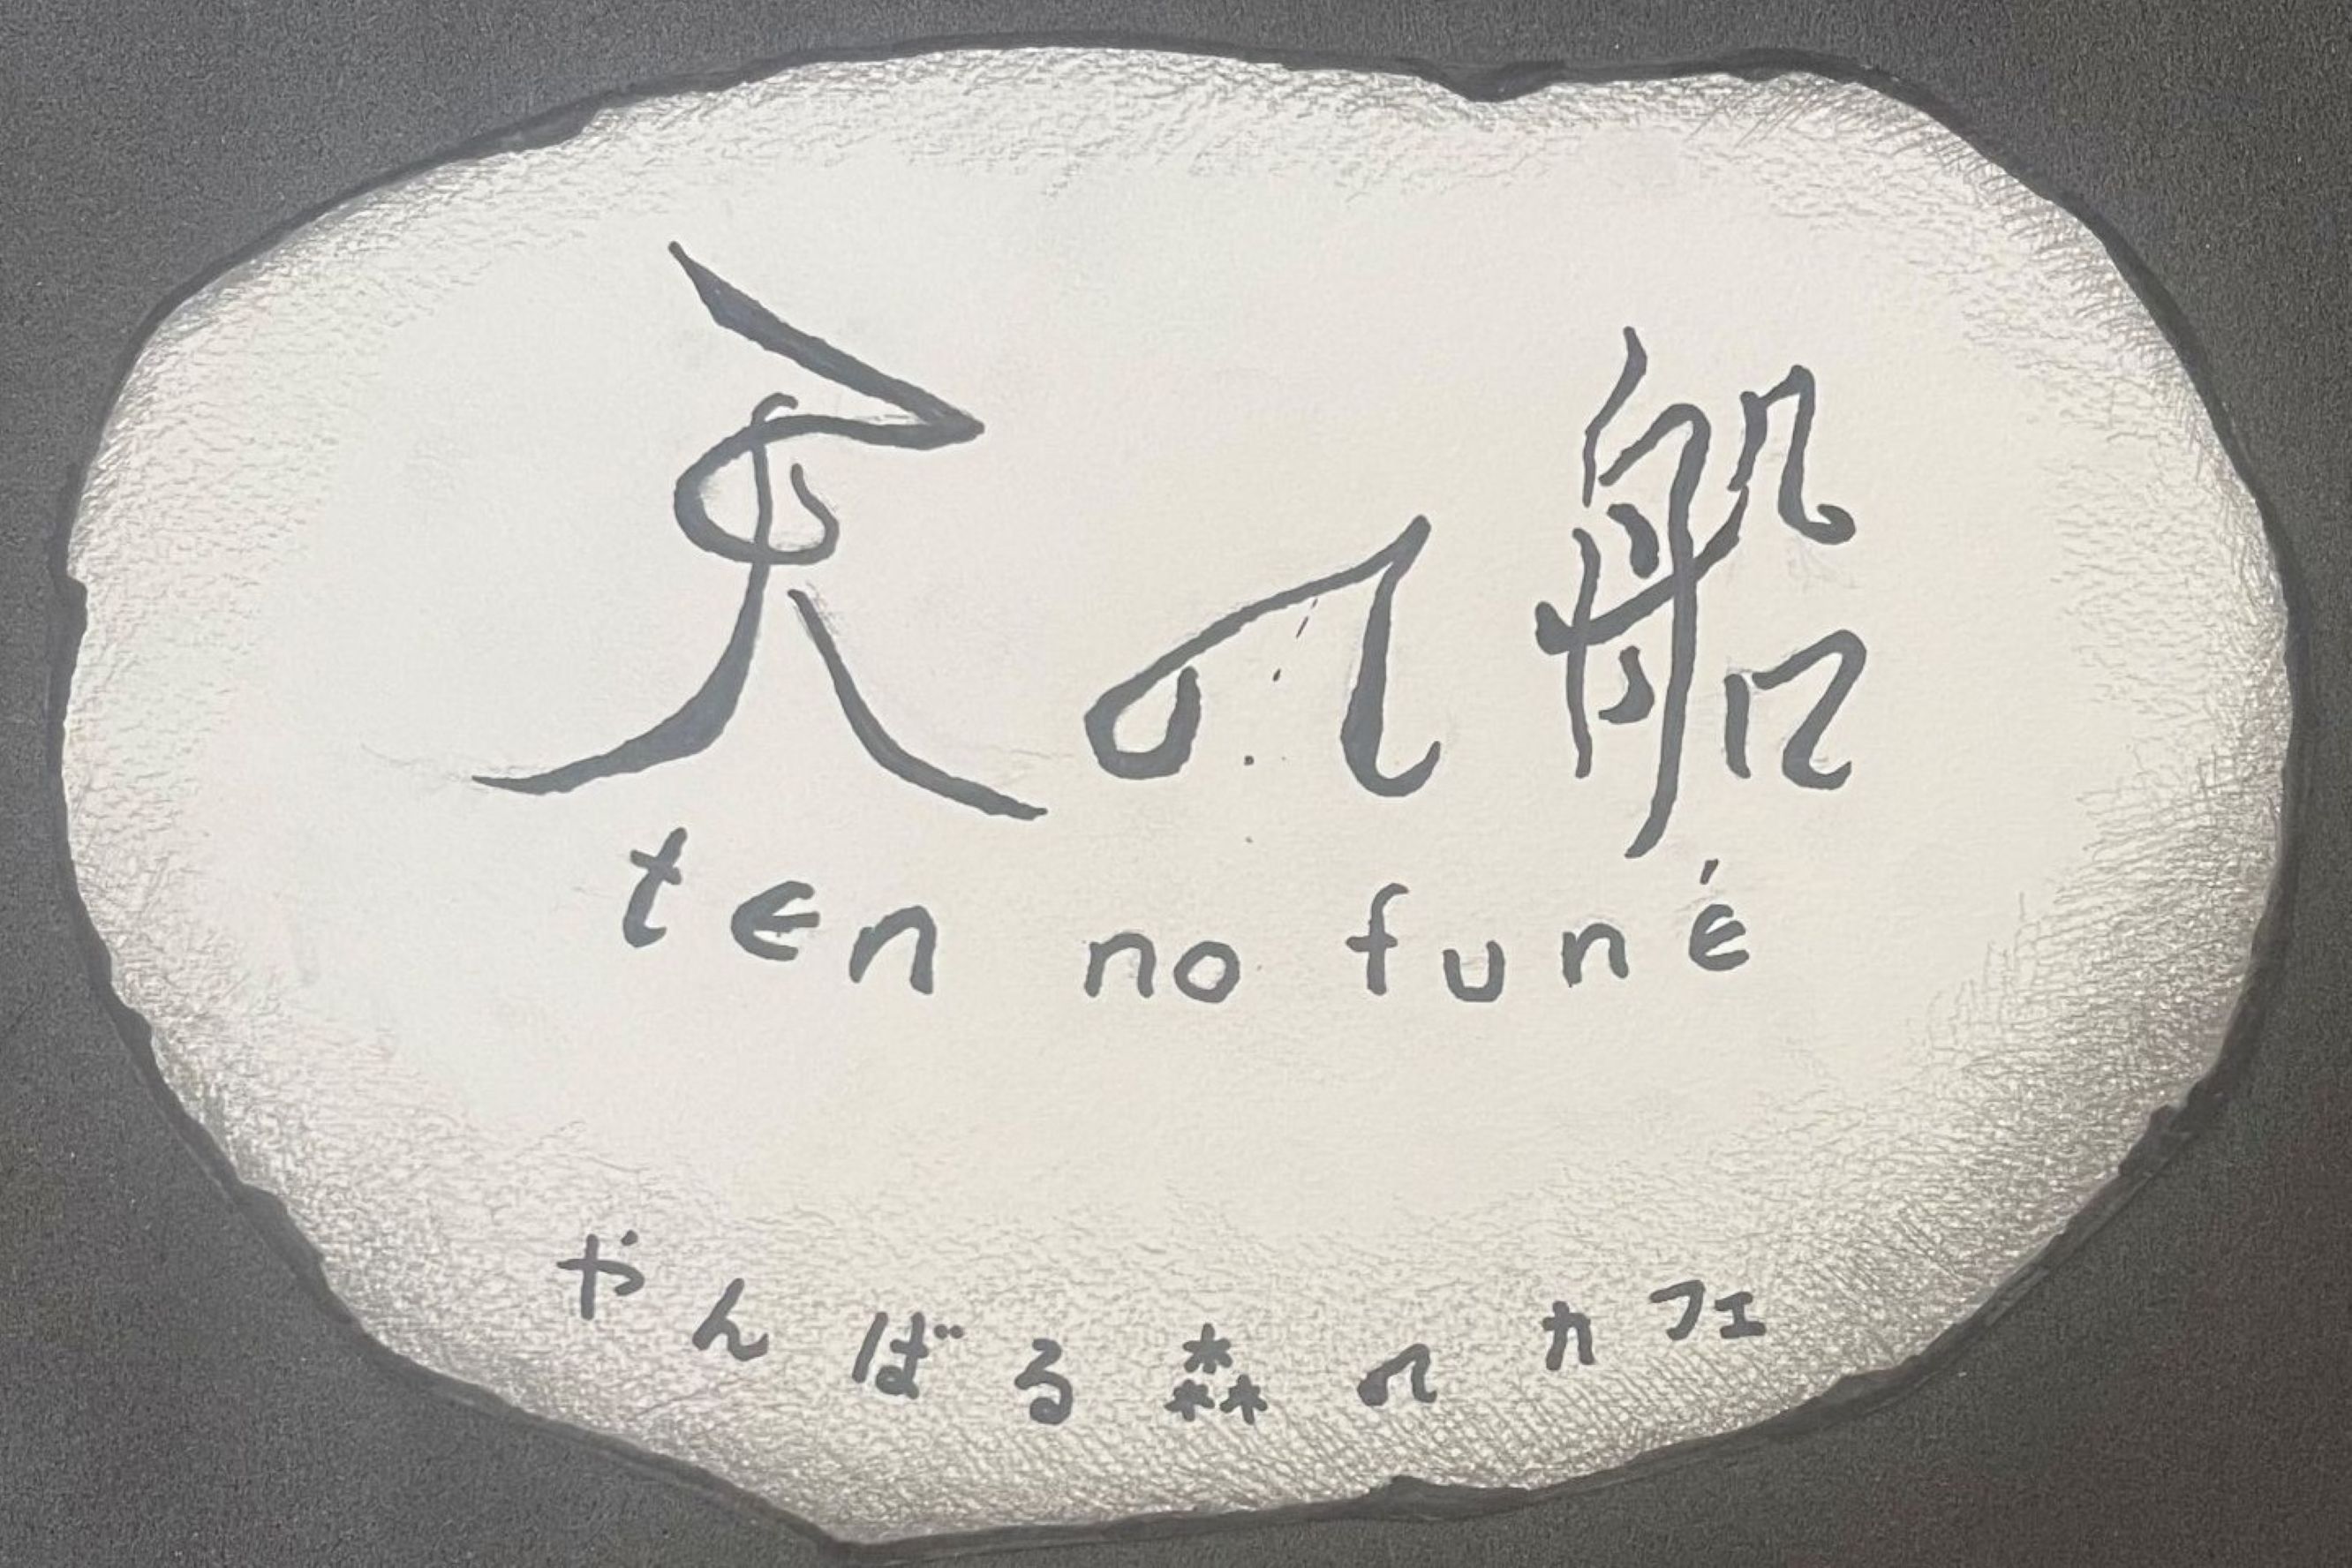 天の船
ten no funé
やんばる森のカフェ